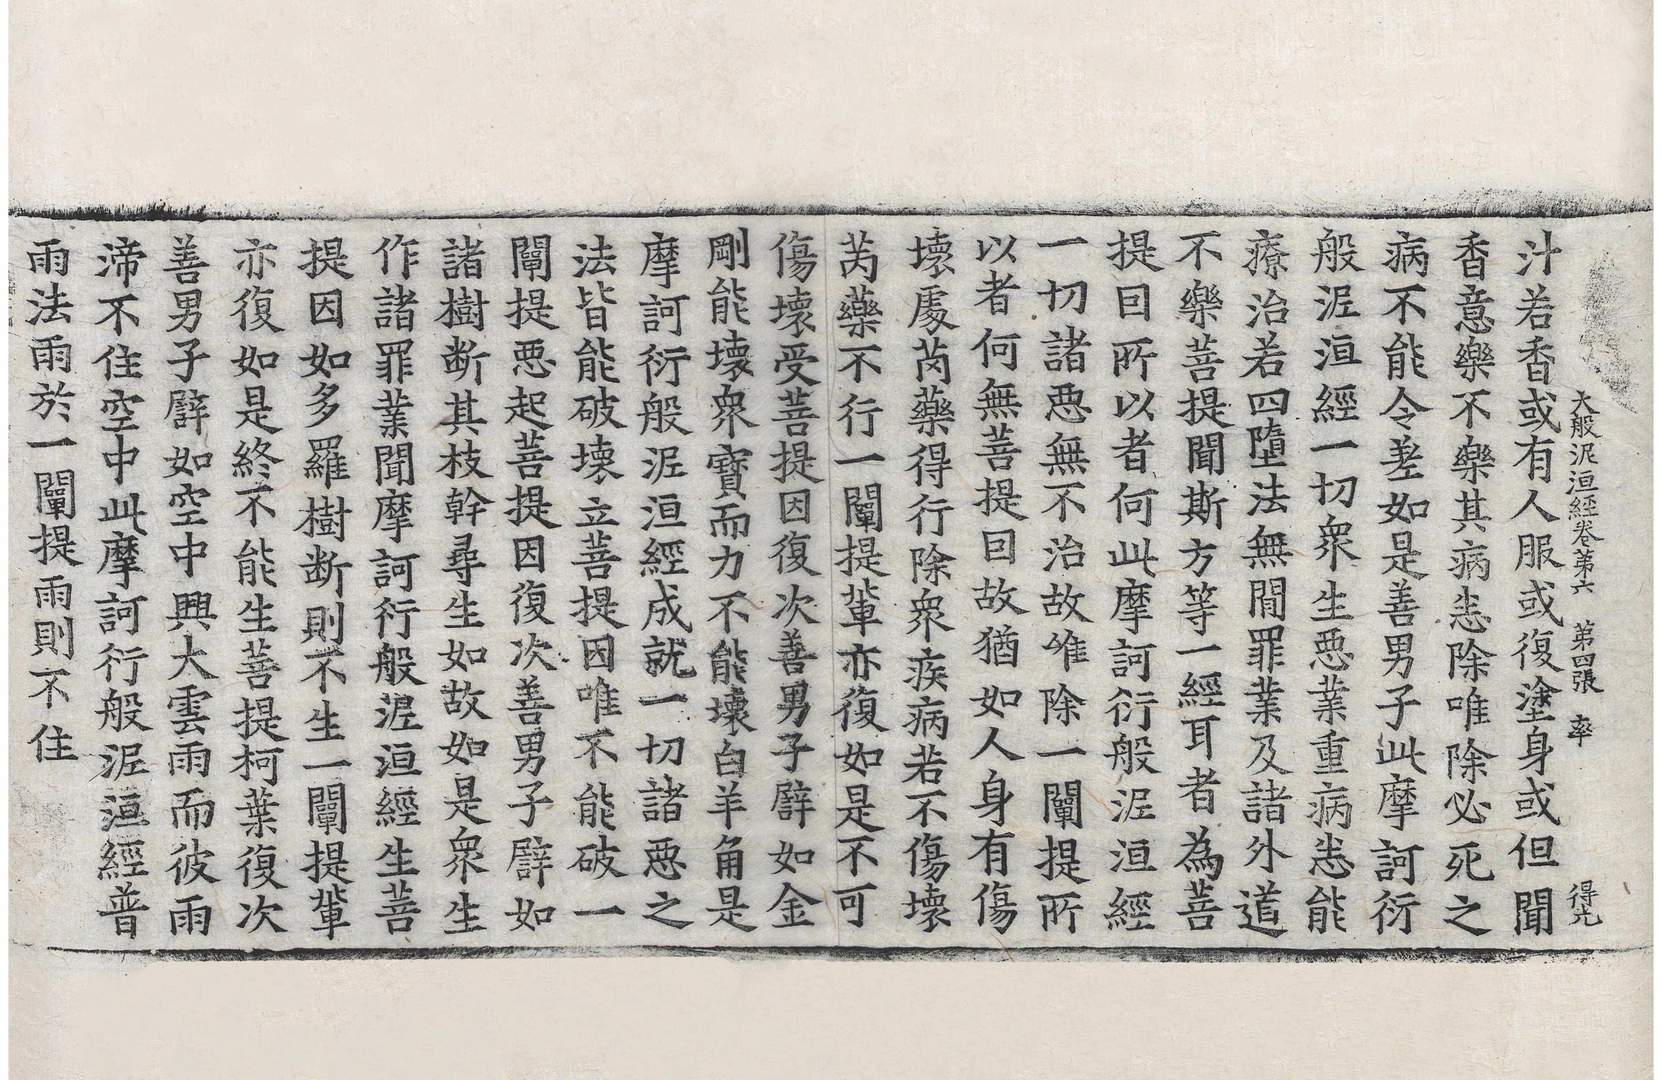 大般泥洹經卷第六　第四張　率　得光
汁若香或有人服或復塗身或但聞
香意樂不樂其病恙除唯除必死之
病不能令差如是善男子此摩訶衍
般泥洹經一切衆生惡業重病恙能
療治若四墮法無閒罪業及諸外道
不樂菩提聞斯方等一經耳者為菩
提因所以者何此摩訶衍般泥洹經
一切諸惡無不治故唯除一闡提所
以者何無菩提因故猶如人身有傷
壞處芮藥得行除衆疾病若不傷壞
芮藥不行一闡提輩亦復如是不可
傷壞受菩提因復次善男子譬如金
剛能壞衆寶而力不能壞白羊角是
摩訶衍般泥洹經成就一切諸惡之
法皆能破壞立菩提因唯不能破一
闡提惡起菩提因復次善男子譬如
諸樹断其枝幹尋生如故如是衆生
作諸罪業聞摩訶衍般泥洹經生菩
提因如多羅樹断則不生一闡提輩
亦復如是終不能生菩提柯葉復次
善男子譬如空中興大雲雨而彼雨
渧不住空中此摩訶衍般泥洹經普
雨法雨於一闡提雨則不住